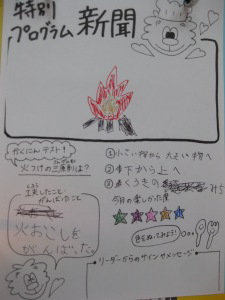 特別
プログラム 新聞
かくにんテスト!
火つけの三原則は?
① 小さい物から 大きい物へ
② 下から上へ
③ くうきの みち
工夫したこと
がんばったこと
火おこしを
がんばった。
今日の楽しかった度
色をぬってみよう!
リーダーからのサインやメッセージ